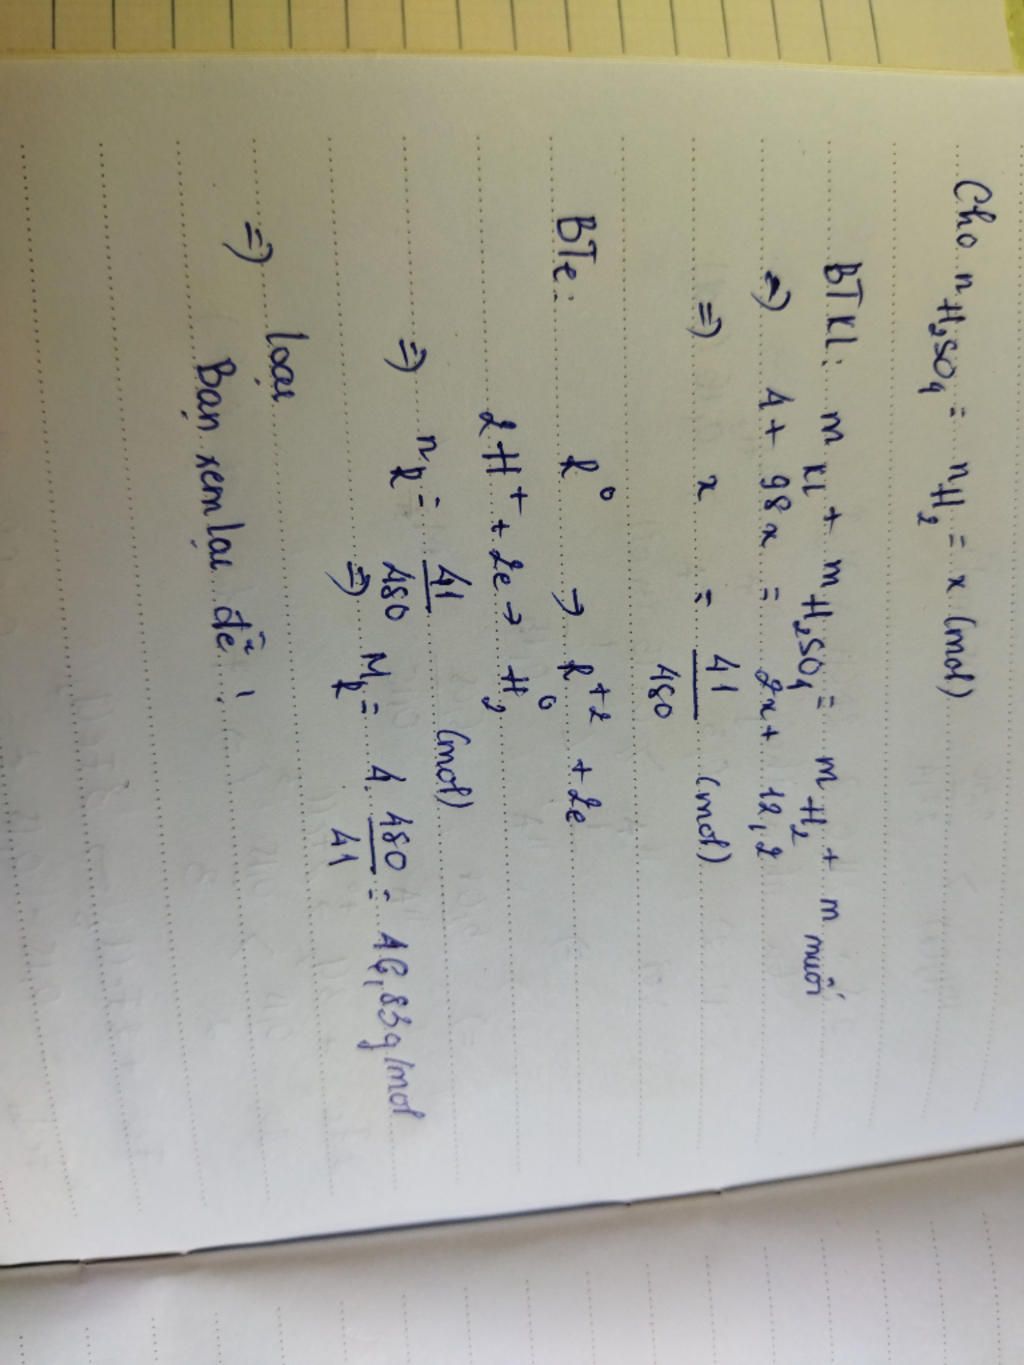 Cho n H₂SO₄ = n H₂ = x (mol)
BTKL: m KL + m H₂SO₄ = m H₂ + m muối
(=) 4 + 98x = 2x + 12,2
=) x = 41/480 (mol)
BTe: R⁰ → R⁺² + 2e
2H⁺ + 2e → H₂⁰
=) n R = 41/480 (mol)
=) M R = 4. 480/41 = 46,83g/mol
=) loại
Bạn xem lại đề !